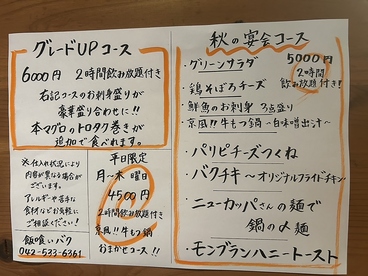 グレードUPコース
6000円 2時間飲み放題付き
右記コースのお刺身盛りが
豪華盛り合わせに!!
本マグロのトロタク巻きが
追加で食べれます。
※仕入れ状況により
内容が異なる場合が
ございます。
アレルギーや苦手な
食材などお気軽に
ご相談ください!
飯喰いバク
042-533-6361
平日限定
月〜木曜日
4500円
2時間飲み放題付き
京風!!牛もつ鍋
おまかせコース!!
秋の宴会コース
5000円
2時間
飲み放題付き!
・グリーンサラダ
・鶏そぼろチーズ
・鮮魚のお刺身 3点盛り
・京風!!牛もつ鍋〜白味噌出汁〜
・パリピチーズつくね
・バクチキ〜オリジナルフライドチキン
・ニューカッパさんの麺で
鍋の〆麺
・モンブランハニートースト